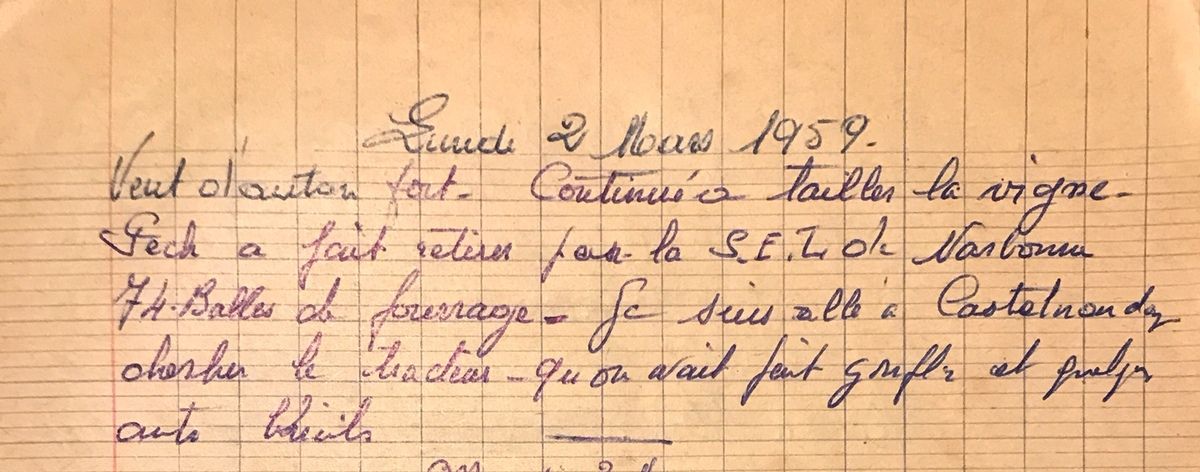 Lundi 2 Mars 1959.
Vent d'autan fort - Continué a tailler la vigne -
Pech a fait retirer par la S.E.L de Narbonne
74 - Balles de fourrage - Je suis allé à Castelnaudary
chercher le tracteur - qu'on avait fait gonfler et quelques